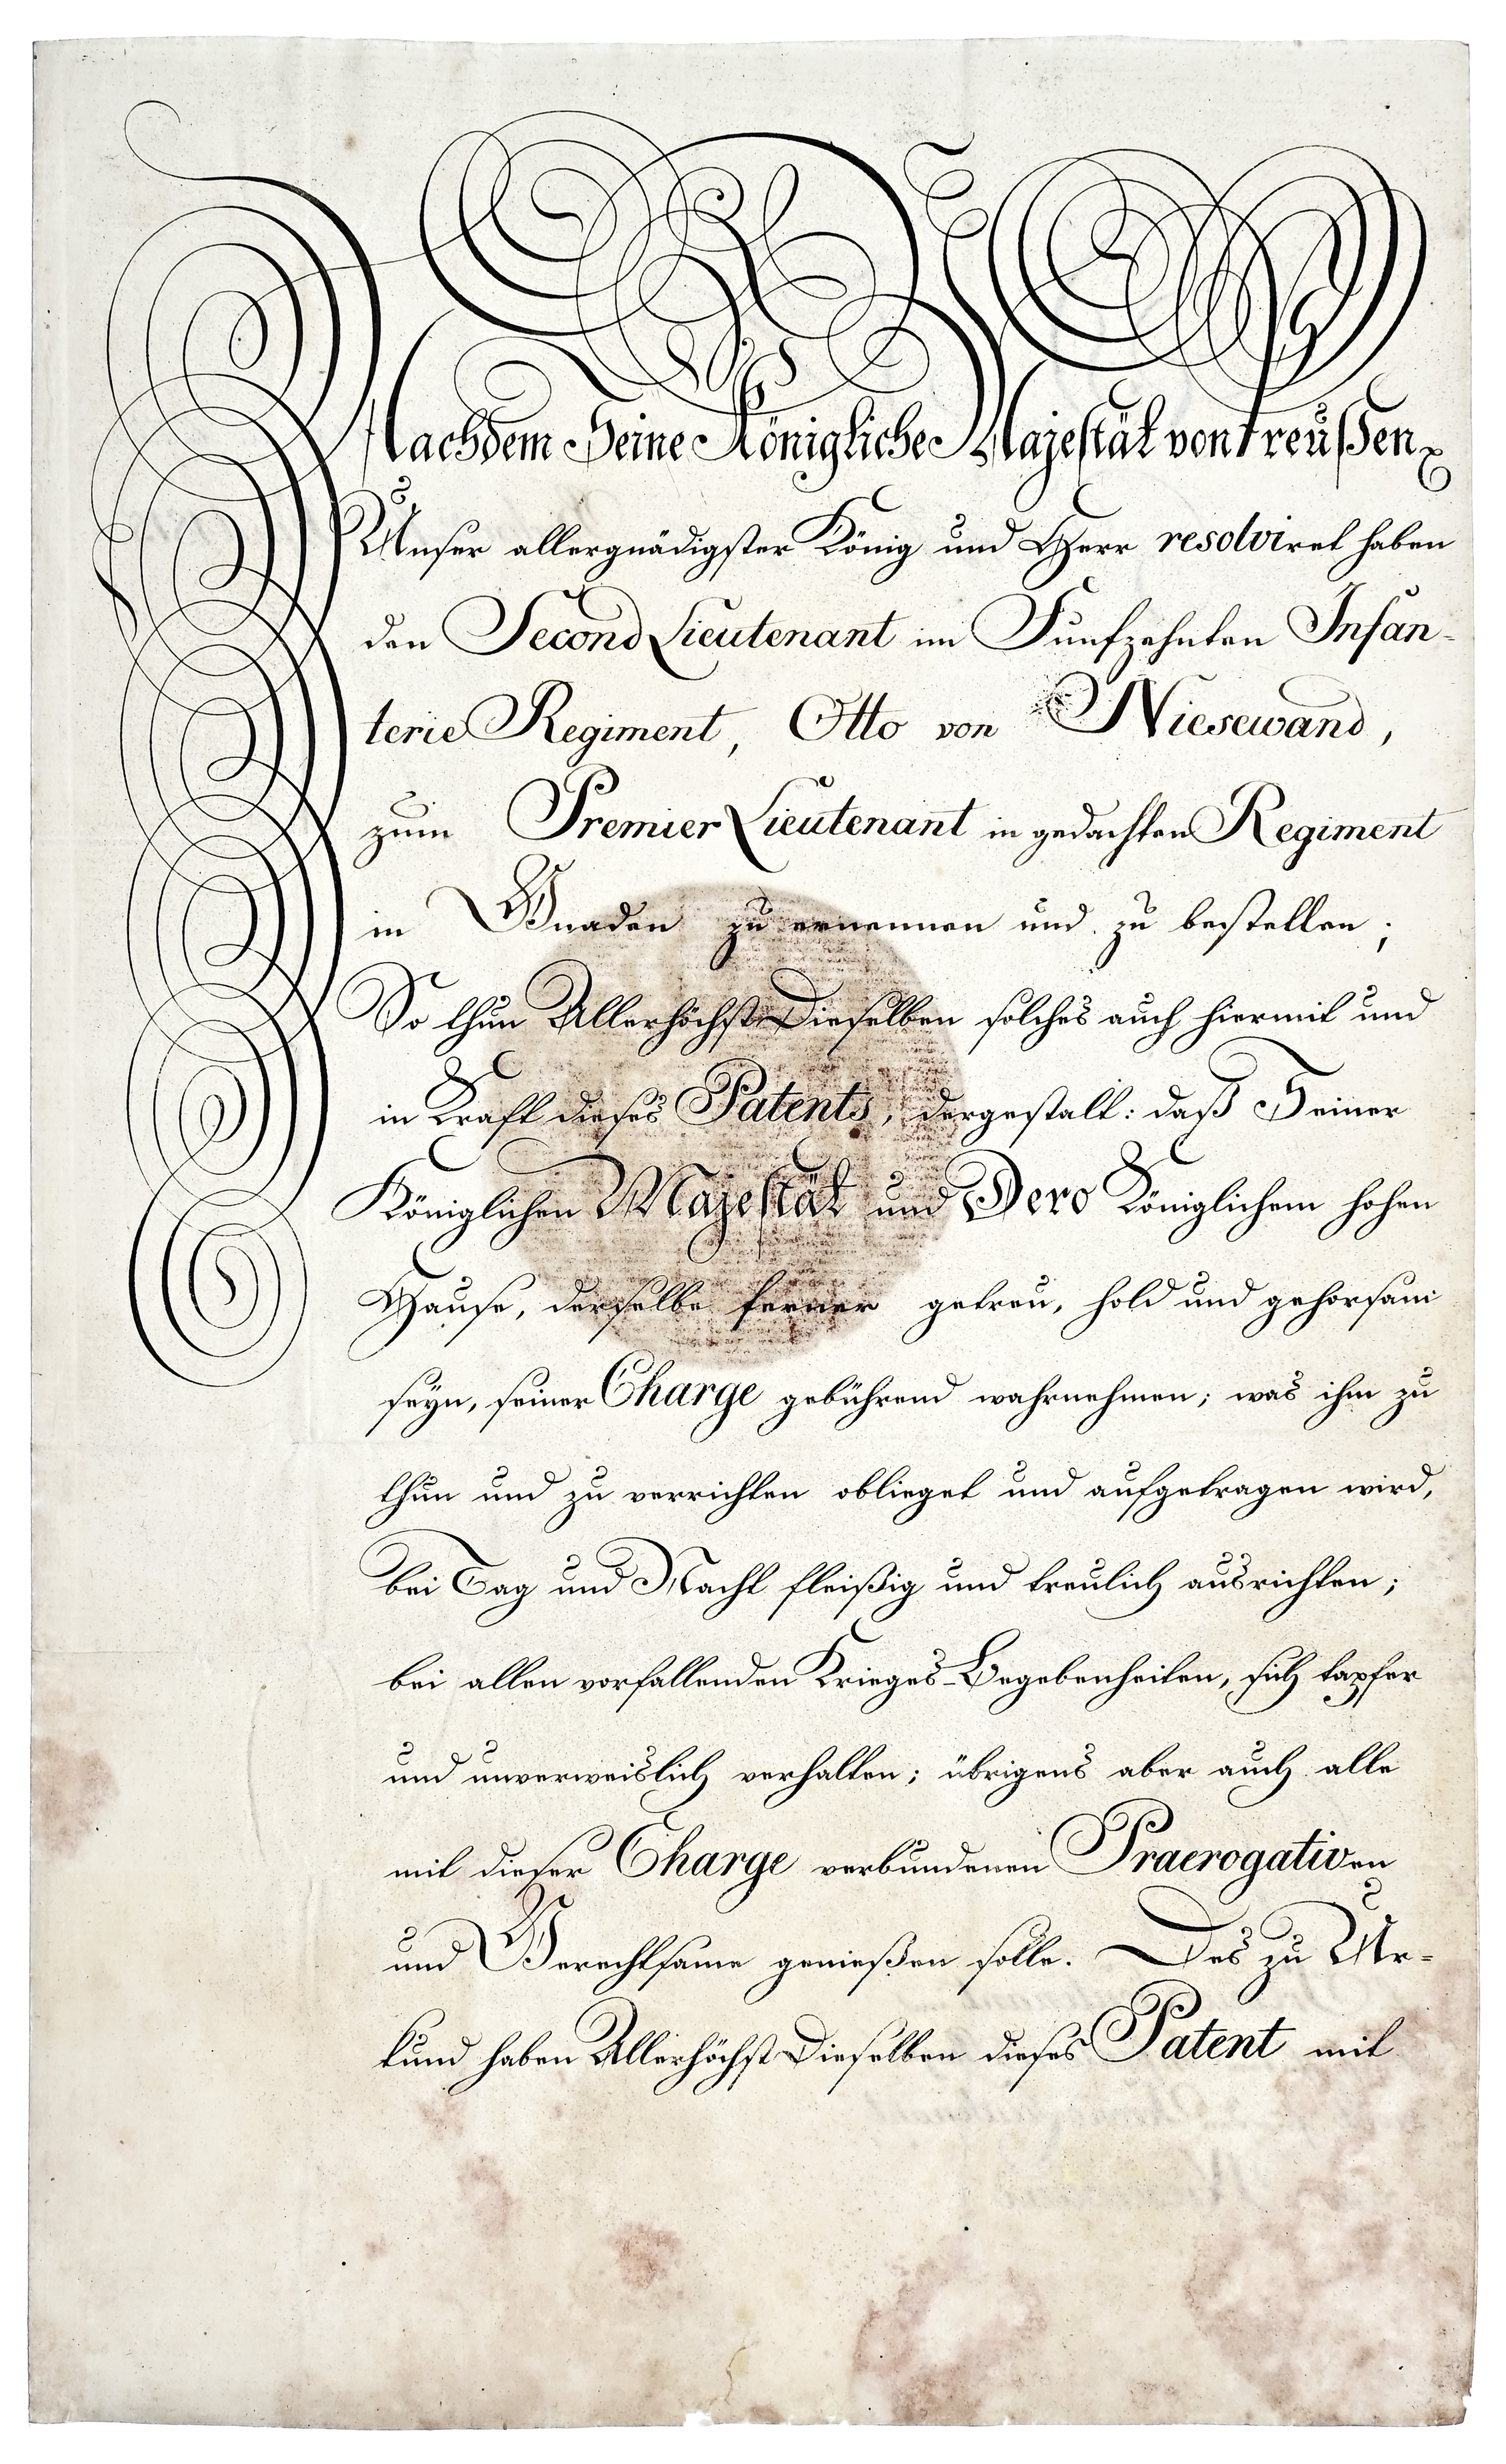 Nachdem Seine Königliche Majestät von Preußen
Unser allergnädigster König und Herr resolviret haben
den Second Lieutenant im Funfzehnten Infan-
terie Regiment, Otto von Niesewand,
zum Premier Lieutenant in gedachten Regiment
in Gnaden zu ernennen und zu bestellen;
So thun Allerhöchst Dieselben solches auch hiermit und
in Kraft dieses Patents, dergestalt: daß Seiner
Königlichen Majestät und Dero Königlichem hohen
Hause, derselbe ferner getreu, hold und gehorsam
seyn, seiner Charge gebührend wahrnehmen; was ihm zu
thun und zu verrichten oblieget und aufgetragen wird,
bei Tag und Nacht fleißig und treulich ausrichten;
bei allen vorfallenden Krieges-Begebenheiten, sich tapfer
und unverweislich verhalten; übrigens aber auch alle
mit dieser Charge verbundenen Praerogativen
und Gerechtsame genießen solle. Des zu Ur-
kund haben Allerhöchst Dieselben dieses Patent mit